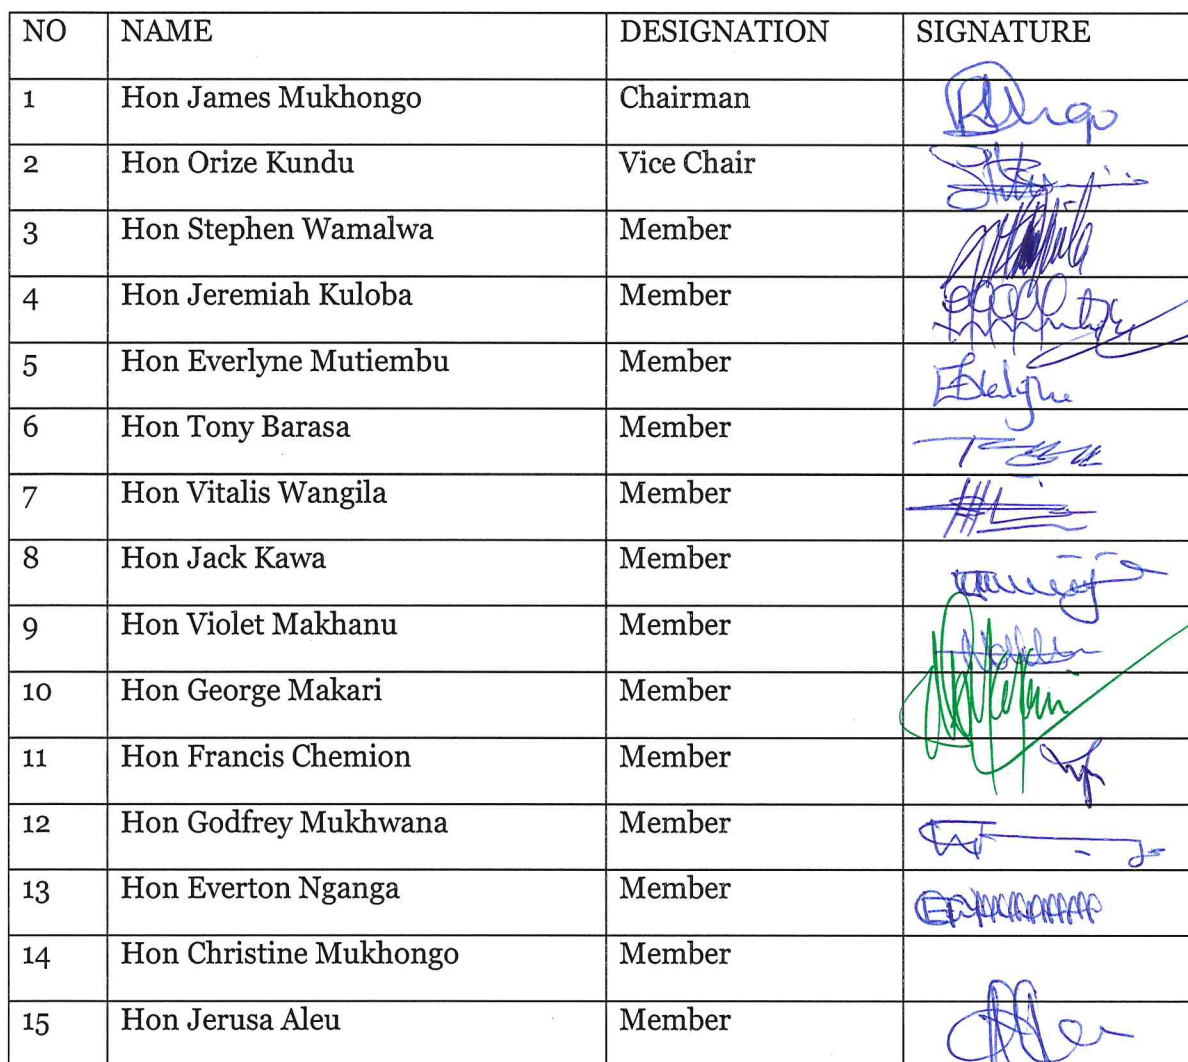 NO NAME DESIGNATION SIGNATURE
1 Hon James Mukhongo Chairman
2 Hon Orize Kundu Vice Chair
3 Hon Stephen Wamalwa Member
4 Hon Jeremiah Kuloba Member
5 Hon Everlyne Mutiembu Member
6 Hon Tony Barasa Member
7 Hon Vitalis Wangila Member
8 Hon Jack Kawa Member
9 Hon Violet Makhanu Member
10 Hon George Makari Member
11 Hon Francis Chemion Member
12 Hon Godfrey Mukhwana Member
13 Hon Everton Nganga Member
14 Hon Christine Mukhongo Member
15 Hon Jerusa Aleu Member